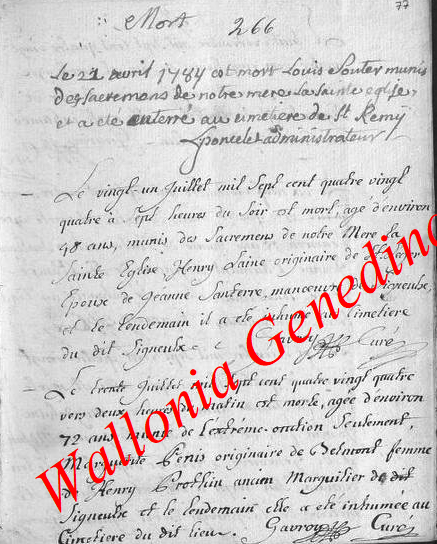 77
Mort
266
Le 21 avril 1784 est mort Louis Souter munis
des sacremens de notre mere la sainte eglise,
et a ete enterré au cimetiere de St Remÿ
Sponcelet administrateur
Le vingt-un Juillet mil Sept cent quatre vingt
quatre à Sept heures du Soir est mort, agé d'environ
48 ans, munis des Sacremens de notre Mere la
Sainte Eglise, Henry Laine originaire de
Epoux de Jeanne Santerre, manœuvre de Signeulx,
et le lendemain il a eté inhumé au Cimetiere
du dit Signeulx Gavroy Curé
Le trente Juillet mil Sept cent quatre vingt quatre
vers deux heures du matin est morte, agée d'environ
72 ans munie de l'extrême-onction Seulement,
Marguerite Penis originaire de Belmont femme
de Henry Prothin ancien Marguilier de dit
Signeulx et le lendemain elle a été inhumée au
Cimetiere du dit lieu. Gavroy Curé
Wallonia Genedina